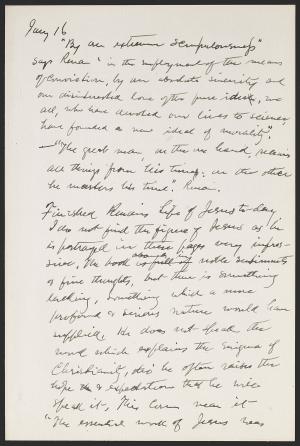 Jany 16
"By an extreme scrupulousness"
says Renan "in the employment of the means
of conviction, by an absolute sincerity and
our disinterested love of the pure idea, we
all, who have devoted our lives to science,
have founded a new ideal of morality".
— "The great man, on the one hand, receives
all things from his times; on the other
he masters his times". Renan.
Finished Renans life of Jesus to-day
I do not find the figure of Jesus as he
is portrayed in these pages very impres-
sive. The book abounds in noble sentiments
& fine thoughts, but there is something
lacking, something which a more
profound & serious nature would have
supplied. He does not speak the
word which explains the enigma of
Christianity, tho' he often raises the
hope & expectations that he will
speak it. This comes near it
"The essential work of Jesus was